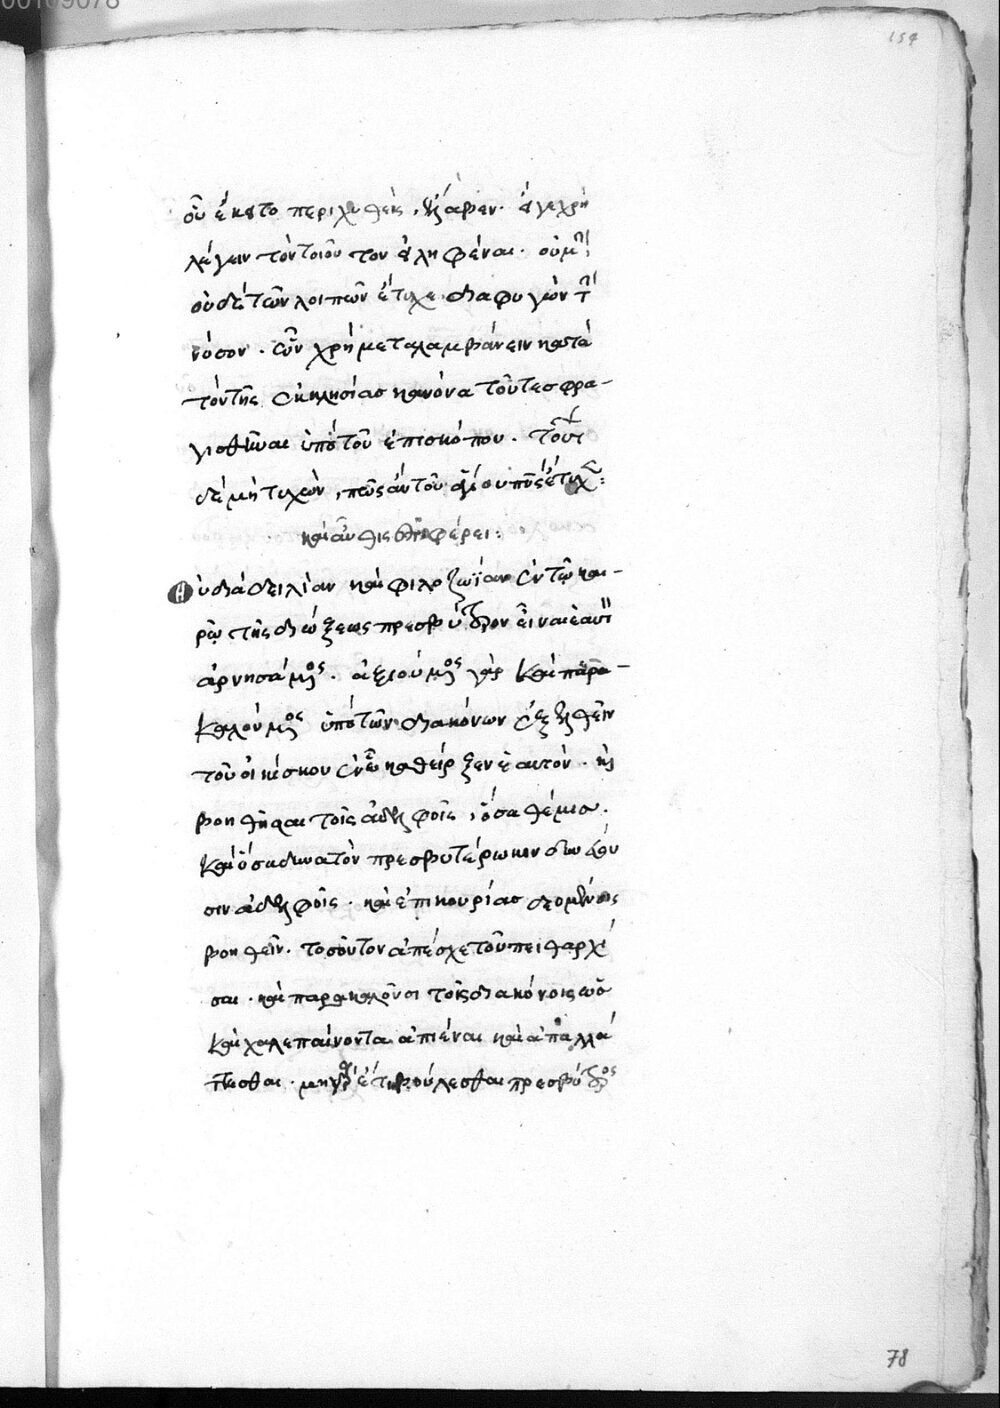 154
οὗ ἔκειτο περιχυθεὶς, ἔλαβεν. εἴγε χρὴ
λέγειν τὸν τοιοῦτον εἰληφέναι. οὐ μὴν
οὐδὲ τῶν λοιπῶν ἔτυχε διαφυγὼν τὴν
νόσον. ὧν χρὴ μεταλαμβάνειν κατὰ
τὸν τῆς ἐκκλησίας κανόνα τοῦ τε σφρα-
γισθῆναι ὑπὸ τοῦ ἐπισκόπου. τούτου
δὲ μὴ τυχὼν, πῶς ἂν τοῦ ἁγίου πνς ἔτυχε:
καὶ αὖθις ἐπιφέρει:
Ὁ διὰ δειλίαν καὶ φιλοζωΐαν ἐν τῷ και-
ρῷ τῆς διώξεως πρεσβύτερον εἶναι ἑαυτὸν
ἀρνησάμενος. ἀξιούμενος γὰρ καὶ παρα-
καλούμενος ὑπὸ τῶν διακόνων ἐξελθεῖν
τοῦ οἰκίσκου ἐν ᾧ καθεῖρξεν ἑαυτὸν. καὶ
βοηθῆσαι τοῖς ἀδελφοῖς, ὅσα θέμις.
καὶ ὅσα δυνατὸν πρεσβυτέρῳ κινδυνεύου
σιν ἀδελφοῖς. καὶ ἐπικουρίας δεομένοις
βοηθεῖν. τοσοῦτον ἀπέσχε τοῦ πειθαρχῆ
σαι. καὶ παρακαλοῦσι τοῖς διακόνοις ὡς
καὶ χαλεπαίνοντα ἀπιέναι καὶ ἀπαλλά
ττεσθαι. μὴ γὰρ ἔτι βούλεσθαι πρεσβύτερος
78